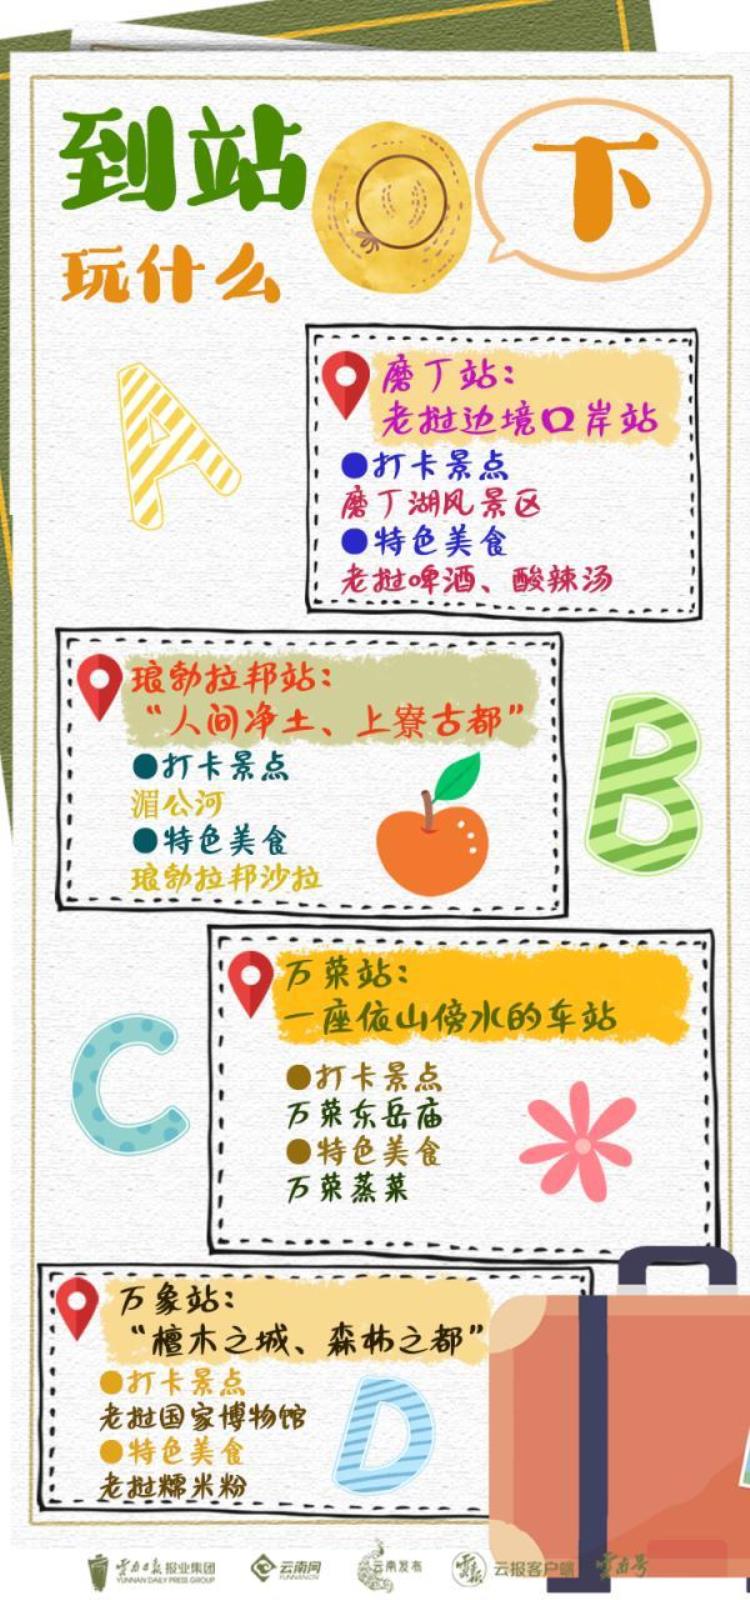 到站
下
玩什么
磨丁站：
老挝边境口岸站
●打卡景点
磨丁湖风景区
●特色美食
老挝啤酒、酸辣汤
A
琅勃拉邦站：
“人间净土、上寮古都”
●打卡景点
湄公河
●特色美食
琅勃拉邦沙拉
B
万荣站：
一座依山傍水的车站
●打卡景点
万荣东岳庙
●特色美食
万荣蒸菜
C
万象站：
“檀木之城、森林之都”
●打卡景点
老挝国家博物馆
●特色美食
老挝糯米粉
D
云南日报报业集团
YUNNAN DAILY PRESS GROUP
云南网
YUNNAN.CN
云南发布
云报客户端
云南号